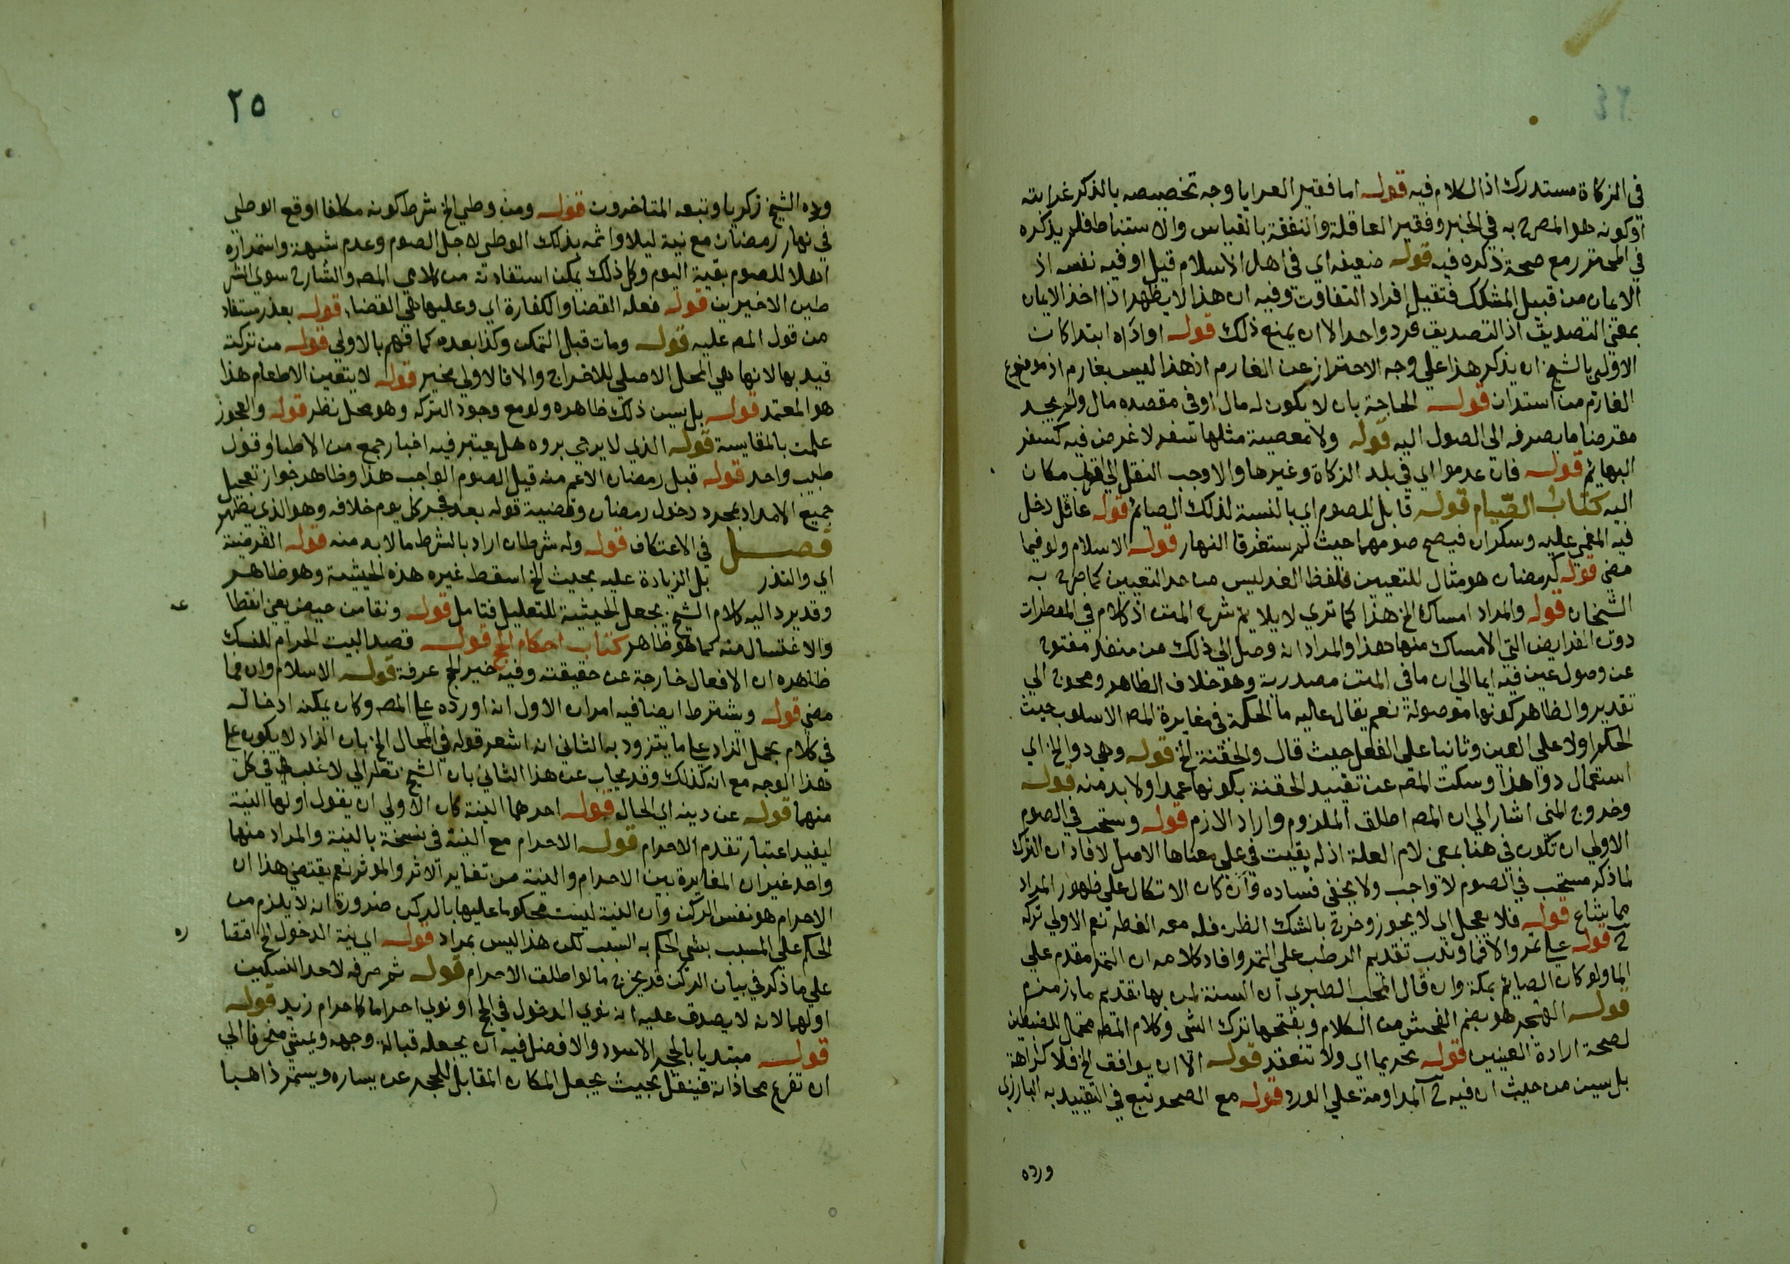 في الزكاة مستدرك اذ الكلام فيه قوله اما فقير العرايا وجه تخصيصه بالذكر غرابته
او كونه هو المصرح به في الخبر وفقير العاقلة والنفقة بالقياس والاستنباط فلم يذكره
في المحترز مع صحة ذكره فيه قوله ضعيفه اي في اهل الاسلام قيل او فيه نفسه اذ
الايمان من قبيل المشكك فتقبل افراد التفاوت وفيه ان هذا لا يظهر اذا اخذ الايمان
بمعنى التصديق اذ التصديق فرد واحد الا ان يمنع ذلك قوله او اذاه ابتدا كان
الاولى بالشيخ ان يذكر هذا على وجه الاحتراز عن الغارم اذ هذا ليس بغارم اذ موضوع
الغارم من استدان قوله الحاجة بان لا يكون له مال او في مقصده مال ولم يجد
مقرضا ما يصرفه الى الصول اليه قوله ولا بمعصية مثلها سفر لا غرض فيه كسفر
البهائم قوله فان عدموا اي في بلد الزكاة وغيرها والا وجب النقل الي اقرب مكان
اليه كتاب الصيام قوله قابل للصوم اي بالنسبة لذلك الصايم قوله عاقل دخل
فيه المغمي عليه وسكران فيصح صومهما حيث لم يستغرقا النهار قوله الاسلام ولو فيما
مضى قوله كرمضان هو مثال للتعيين فلفظ الغد ليس من حد التعيين كما صرح به
الشيخان قوله والمراد امساك الخ هذا كما تري لا يلايم شرح المتن اذ كلام في المفطرات
دون الفرايض التي الامساك منها هذا والمراد انه وصل الي ذلك من منفذ مفتوح
عن وصول عين فيه ايما الي ان ما في المتن مصدرية وهو خلاف الظاهر ومحوج الي
تقدير والظاهر كونها موصولة نعم يقال عاليه ما الحكمة في مغايرة المص الاسلوب حيث
الحكم اولا علي العين وثانيا على الفعل حيث قال والحقنة الخ قوله وهي دوا الخ اي
استعمال دوا هذا وسكت المص عن تقييد الحقنة بكونها عمدا ولا بد منه قوله
وخروج المنى اشار الي ان المص اطلق الملزوم واراد الازم قوله وستحب في الصوم
الاولى ان تكون في هنا بمعنى لام العلة اذ لو بقيت في على معناها الاصل لافاد ان الترك
لما ذكر مستحب في الصوم لا واجب ولا يخفى فساده وان كان الاتكال على ظهور المراد
مما شاع قوله فلا يعجل اى لا يجوز وخرج بالشك الظن فله معه الفطر نعم الاولى تركه
ح قوله على تمر والا فما وندب تقديم الرطب على التمر وافاد كلامه ان التمر مقدم على
الما ولو كان الصايم بمكة وان قال المحب الطبري ان السنة لمن بها تقديم ماء زمزم
قوله الهجر هو بضم الفحش من الكلام وبفتحها ترك الشى وكلام المتن محتمل للضبطين
لصحة ارادة المعنيين قوله تحريما اى ولا تنعقد قوله الا ان يوافق الخ فلا كراهة
بل سين من حيث ان فيه ح المداومة علي الورد قوله مع الصحو تبع في التقييد به البارزي
ورده
٢٥
ورده الشيخ زكريا وتبعه المتاخرون قوله ومن وطي الخ شرط كونه مكلفا اوقع الوطي
في نهار رمضان مع نية ليلا واثمه بذلك الوطي لاجل الصوم وعدم شبهة واستمراره
اهلا للصوم بقية اليوم وكل ذلك يمكن استفادته من كلامي المص والشارح سوى الشر
طين الاخيرين قوله فعله القضا والكفارة اي وعليها هي القضا قوله بعذر مستفاد
من قول المص عليه قوله ومات قبل التمكن وكذا بعده كما فهم بالاولى قوله من تركته
قيد بها لانها هي المحل الاصلي للاخراج والا فالاولى يخير قوله لا يتعين الاطعام هذا
هو المعتمد قوله بل يسن ذلك ظاهره ولو مع وجود التركة وهو محل نظر قوله والعجوز
علمت بالمقايسة قوله الذي لا يرجي بروه هل يعتبر فيه اخبار جمع من الاطبا او قول
طبيب واحد قوله قبل رمضان الاعم منه قيل الصوم الواجب هذا وظاهر جواز تعجيل
جميع الامداد بمجرد دخول رمضان وقضية قوله بعد فجر كل يوم خلافه وهو الذي يظهر
فصل في الاعتكاف قوله وله شرطان اراد بالشرط ما لا بد منه قوله الفرضية
اي والنذر بل الزيادة عليه بحيث الخ اسقط غيره هذه الحيثية وهو ظاهر
وقد يرد اليه كلام الشيخ بجعل الحيثية للتعليل فتامل قوله ونقا من حيض يعني انقطا
عه
والاغتسال منه كما هو ظاهر كتاب احكام الحج قوله قصد البيت الحرام للنسك
ظاهره ان الافعال خارجة عن حقيقته وفيه خبر الحج عرفة قوله الاسلام وان فما
مضى قوله ويشترط ايضا فيه امران الاول انه اورده على المص وكان يمكنه ادخاله
في كلام بحمل الزاد على ما يتزود به الثاني انه اشعر قوله في المحال الخ بان الزاد لا يكون على
هذا الوجه مع انه كذلك وقد يجاب عن هذا الثاني بان الشيخ نظر الي الاغلب في كل
منهما قوله عن دينه اي الحال قوله احدهما النية كان الاولى ان يقول اولها النية
ليفيد اعتبار تقدم الاحرام قوله الاحرام مع النية في نسخة بالنية والمراد منهما
واحد غير ان المغايرة بين الاحرام والنية من تغاير الاثر والموثر نعم يقتضى هذا ان
الاحرام هو نفس الركن وان النية ليست محكوما عليها بالركن ضرورة انه لا يلزم من
الحكم على المسبب بشي الحكم به السبب لكن هذا ليس بمراد قوله اي نية الدخول الخ اقتصا
ره
على ما ذكر في بيان الركن قد يخرج ما لو اطلق الاحرام قوله ثم صرفه لاحد النسكين
اولهما لانه لا يصدق عليه انه نوي الدخول في الحج او نوى احراما كاحرام زيد قوله
قوله مبتديا بالحجر الاسود والافضل فيه ان يجعله قبالة وجهه ويمشي منحرفا الي
ان تفرغ محاذاته فينفتل بحيث يجعل المكان المقابل للحجر عن يساره ويستمر ذاهبا